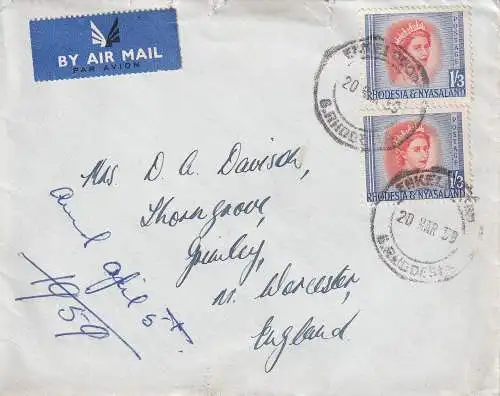 BY AIR MAIL
PAR AVION
POSTAGE
1/3
RHODESIA & NYASALAND
20 MAR 59
S. RHODESIA
POSTAGE
1/3
RHODESIA & NYASALAND
ENKEL
20 MAR 59
S. RHODESIA
Mrs D. A. Davison,
Thorngrove,
Grimley,
nr. Worcester,
England.
and April 5th.
1959